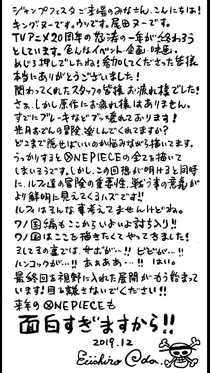 ジャンプフェスタご来場のみなさん、こんにちは!
キング・ヌーです。ウソです。尾田ヌーです。
TVアニメ20周年の怒涛の一年が終わろう
としています。色んなイベント・企画・映画・
めじろ押しでしたね!参加してくださった皆様
本当にありがとうございました!
関わってくれたスタッフの皆様お疲れ様でした!
さぁ、しかし原作にお疲れ様はありません。
すでにブルーキなどブッ壊れております!
来月おどんの冒険、楽しんでくれてますか?
どこまで隠せばいいのか悩みながら描いてます。
うっかりするとONE PIECEの全てを描いて
しまいそうです。しかし、この回想が明けると同時
に、ルフィ達の冒険の重要性、戦う事の意義が
より鮮明に見えてくるハズです!!
ルフィはそんな事考えてませんけどね。
ワノ国編もここからいよいよ討ち入り!!
ワノ国はここを描きたくてやってきました!
3し3の裏では、サボが…!!ビビが…!!
ハンコックが…!!あぁああ…!!はい。
最終回を視野に入れた展開がもう始まって
います!目を離さないでください!!
来年のONE PIECEも
面白すぎますから!!
2019.12
Eiichiro Oda